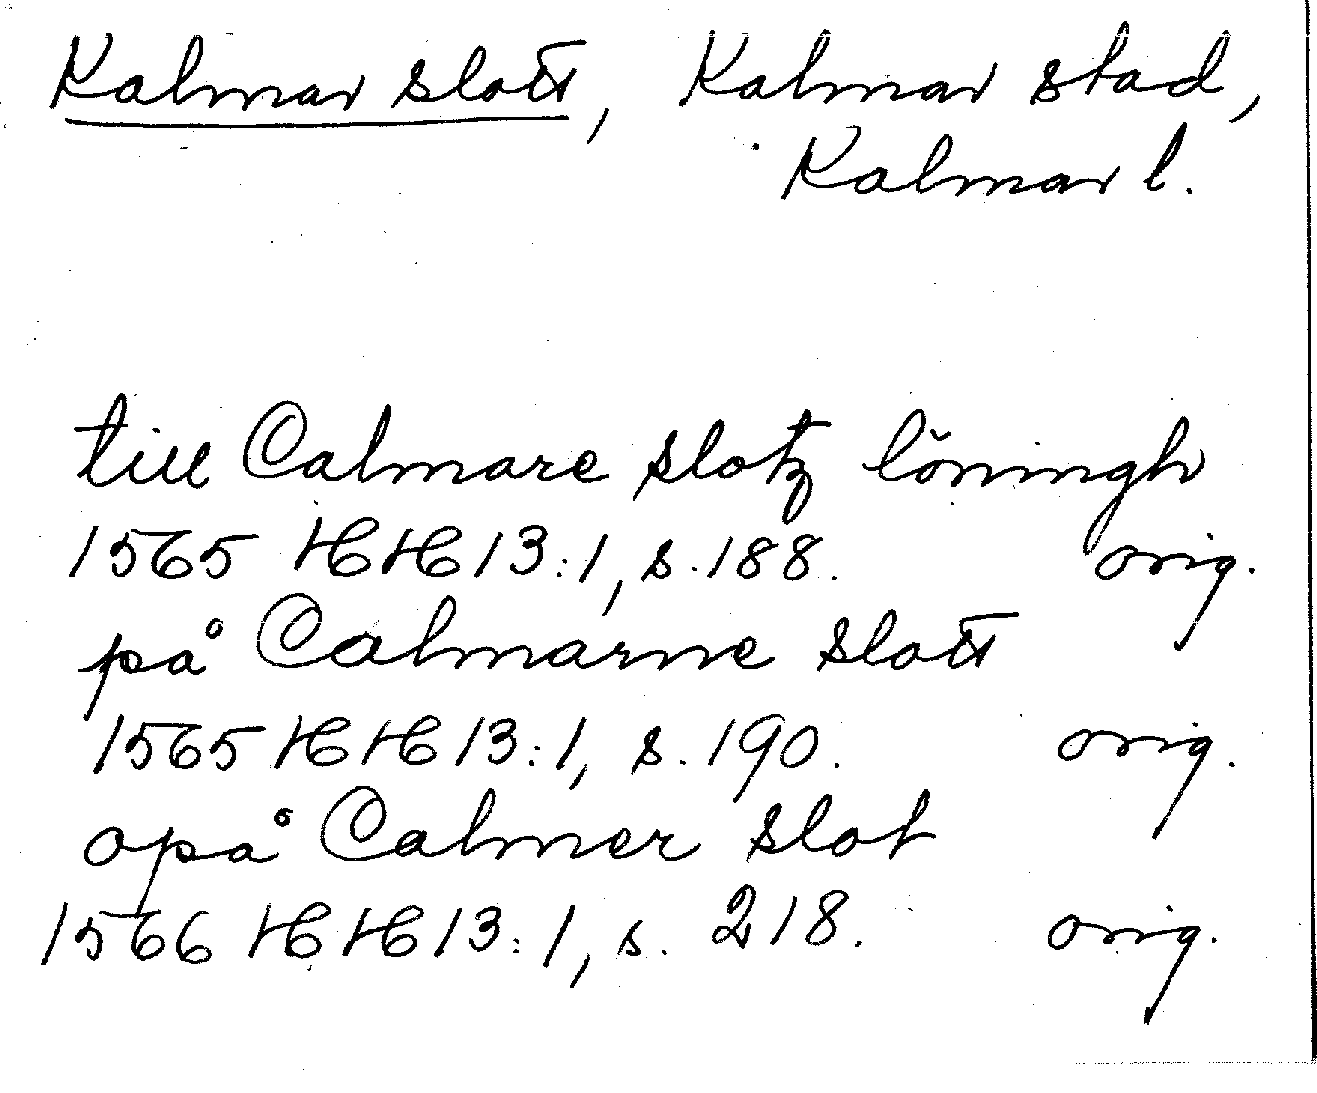 Kalmar slott, Kalmar stad,
Kalmar l.
till Calmare slotz löningh
1565 HH 13:1, s. 188. orig.
på Calmarne slott
1565 HH 13:1, s. 190. orig.
opå Calmer slot
1566 HH 13:1, s. 218. orig.